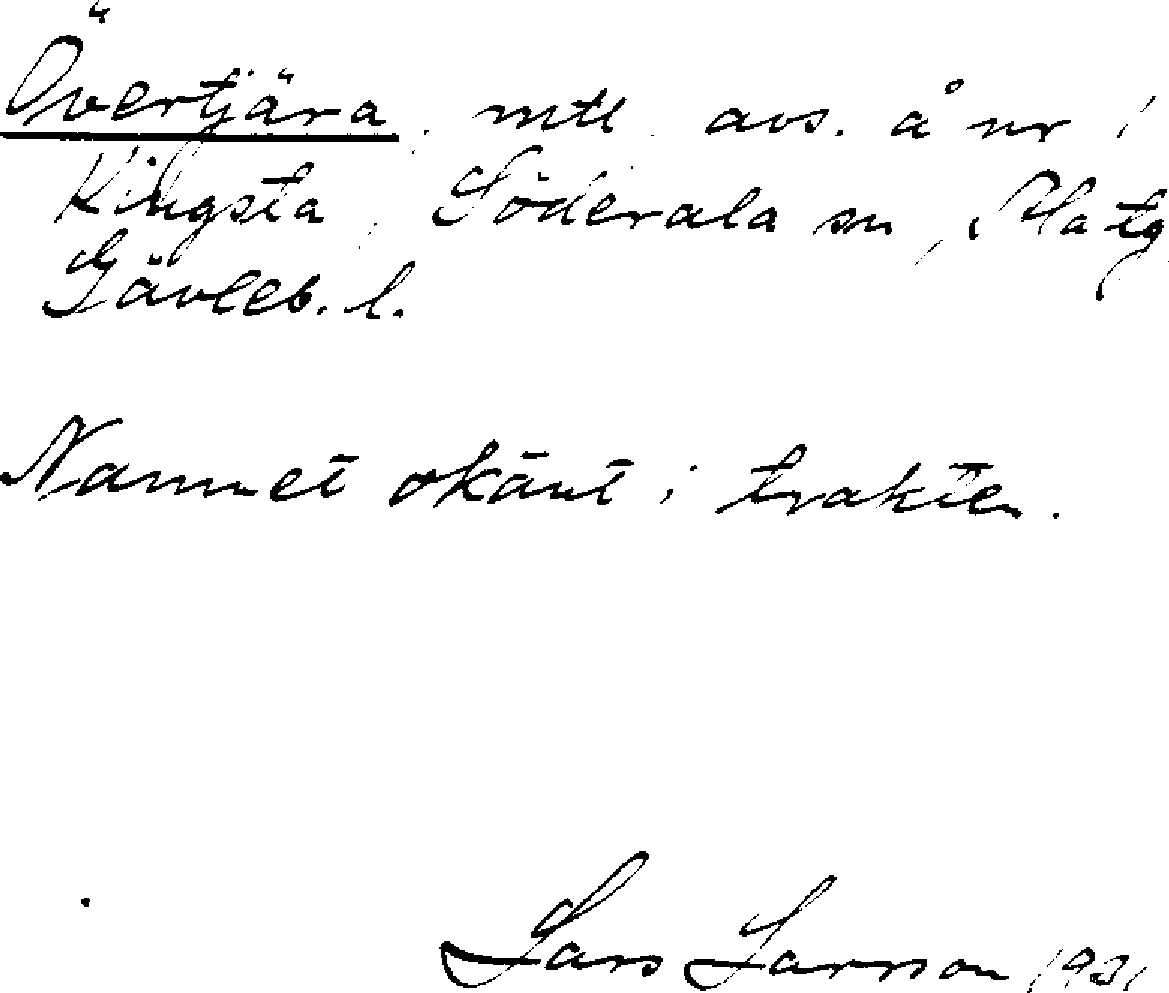 Övertjära, mtl avs. å nr 1
Kingsta, Söderala sn,
Gävleb. l.
Namnet okänt i trakten.
Lars Larsson 1931